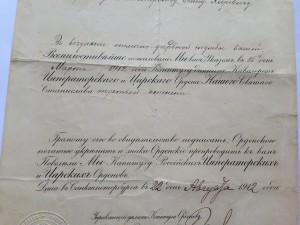 Въ воздаяніе отлично-усердной службы вашей
Всемилостивѣйше пожаловали Мы васъ Указомъ въ 16 день
1912 Капитулу даннымъ, Кавалеромъ
Императорскаго и Царскаго Ордена Нашего Святаго
Станислава степени
Грамоту сію во свидѣтельство подписать, Орденскою
печатью укрѣпить и знаки Орденскіе препроводить къ вамъ
Повелѣли Мы Капитулу Россійскихъ Императорскихъ
и Царскихъ Орденовъ.
Дана въ Санктпетербургѣ въ 22 день Августа 1912 года
Капитула Орденовъ